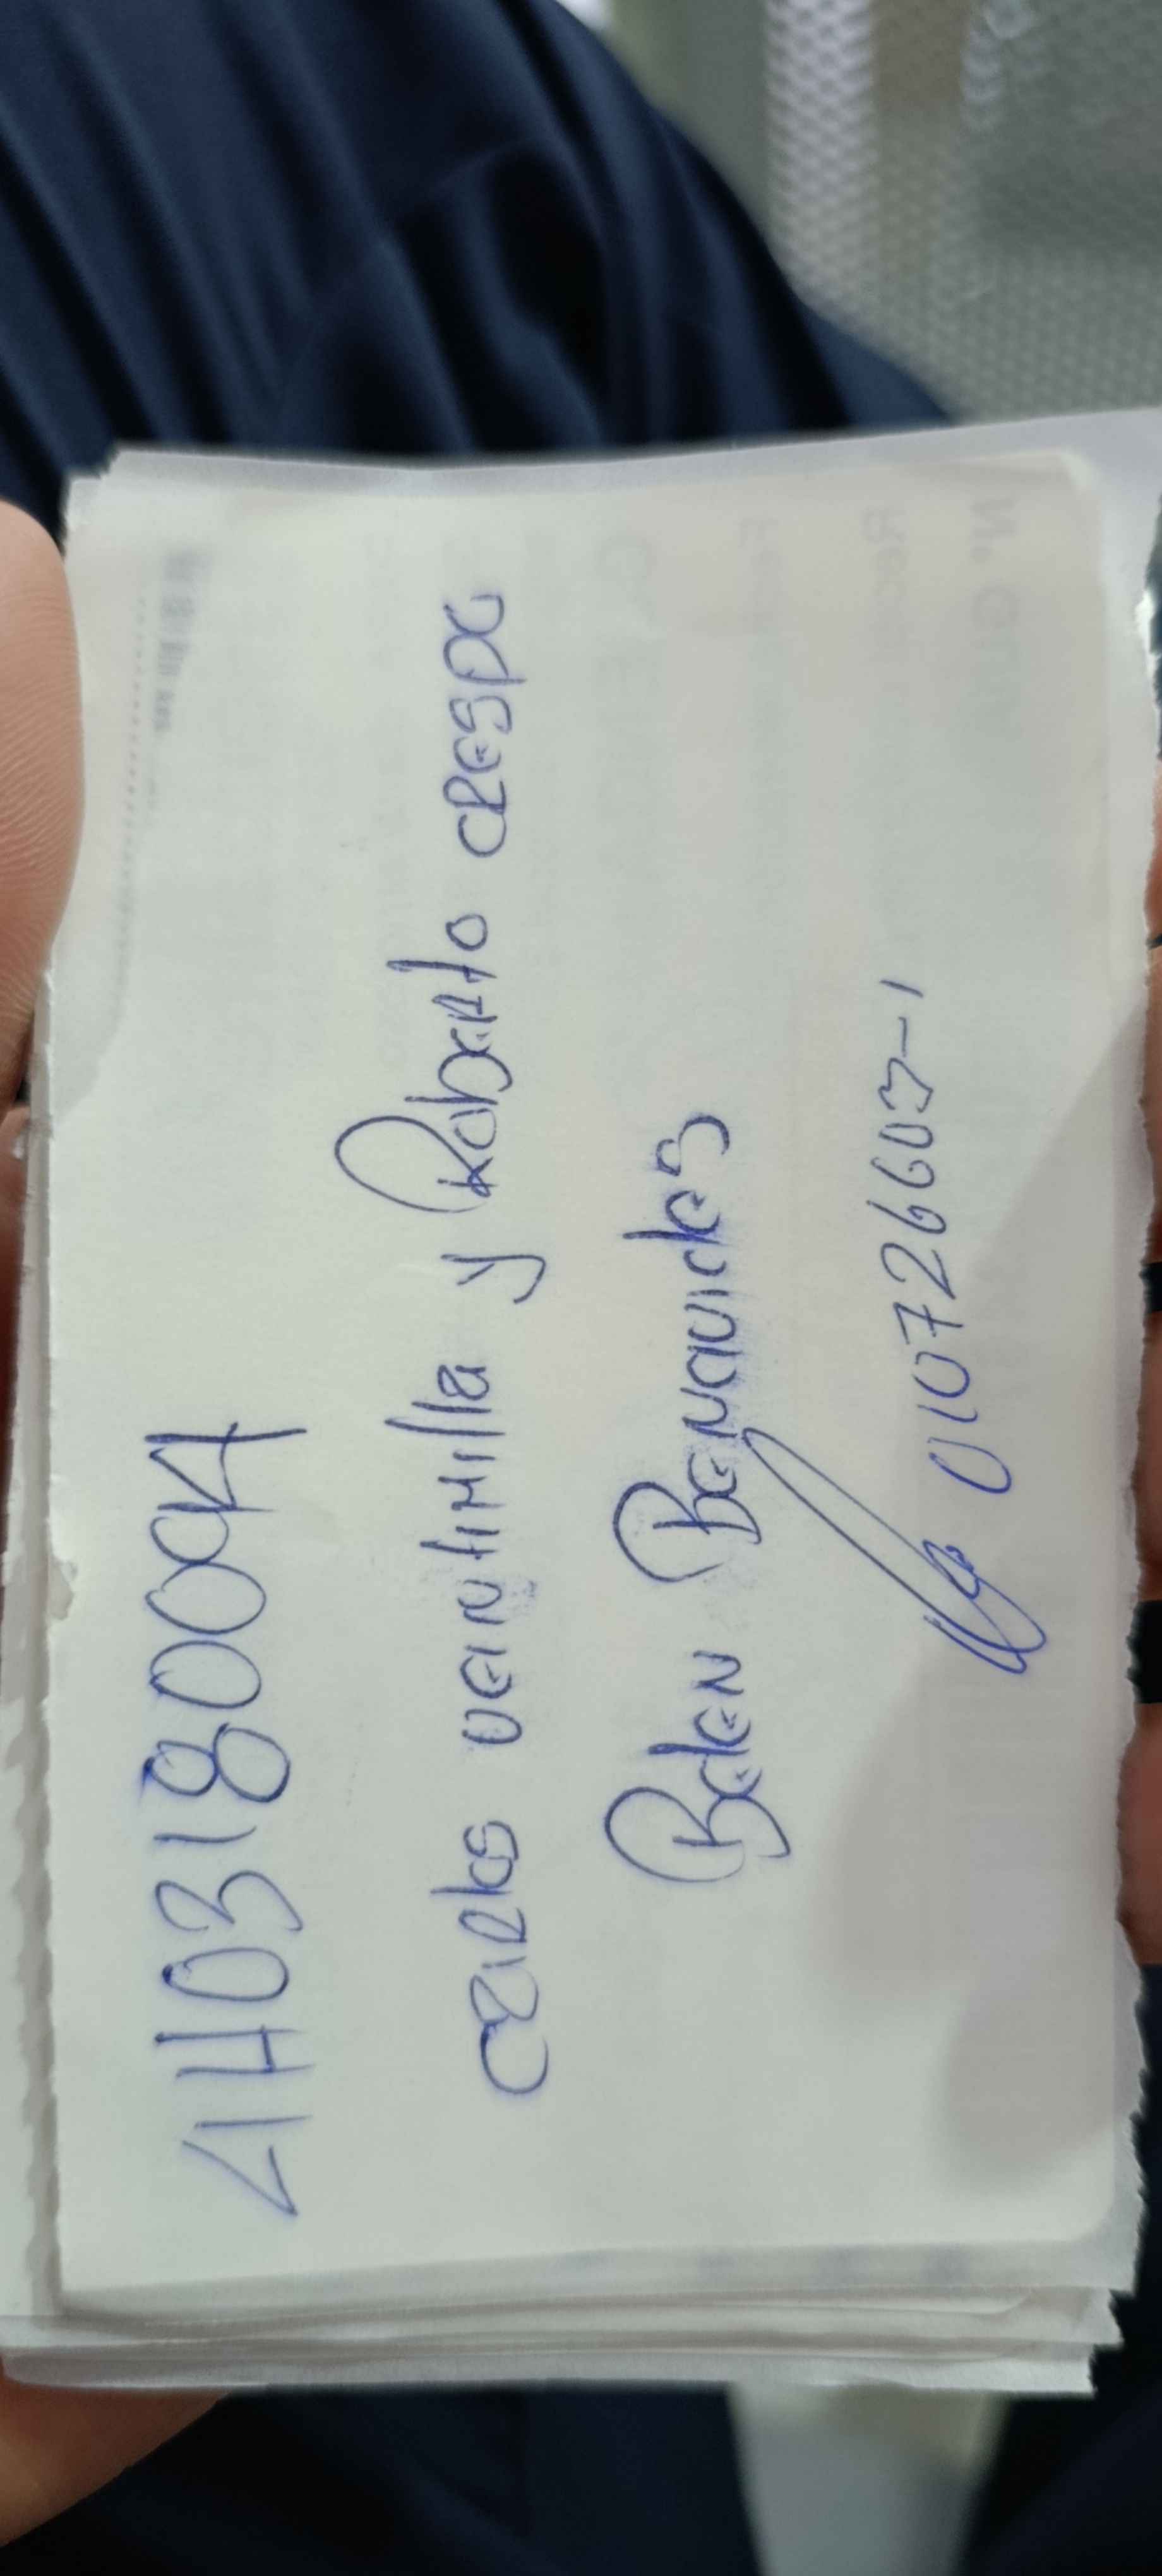 1H0318004
Carlos veintimilla y Roberto crespo
Belen Benavides
010726603-1